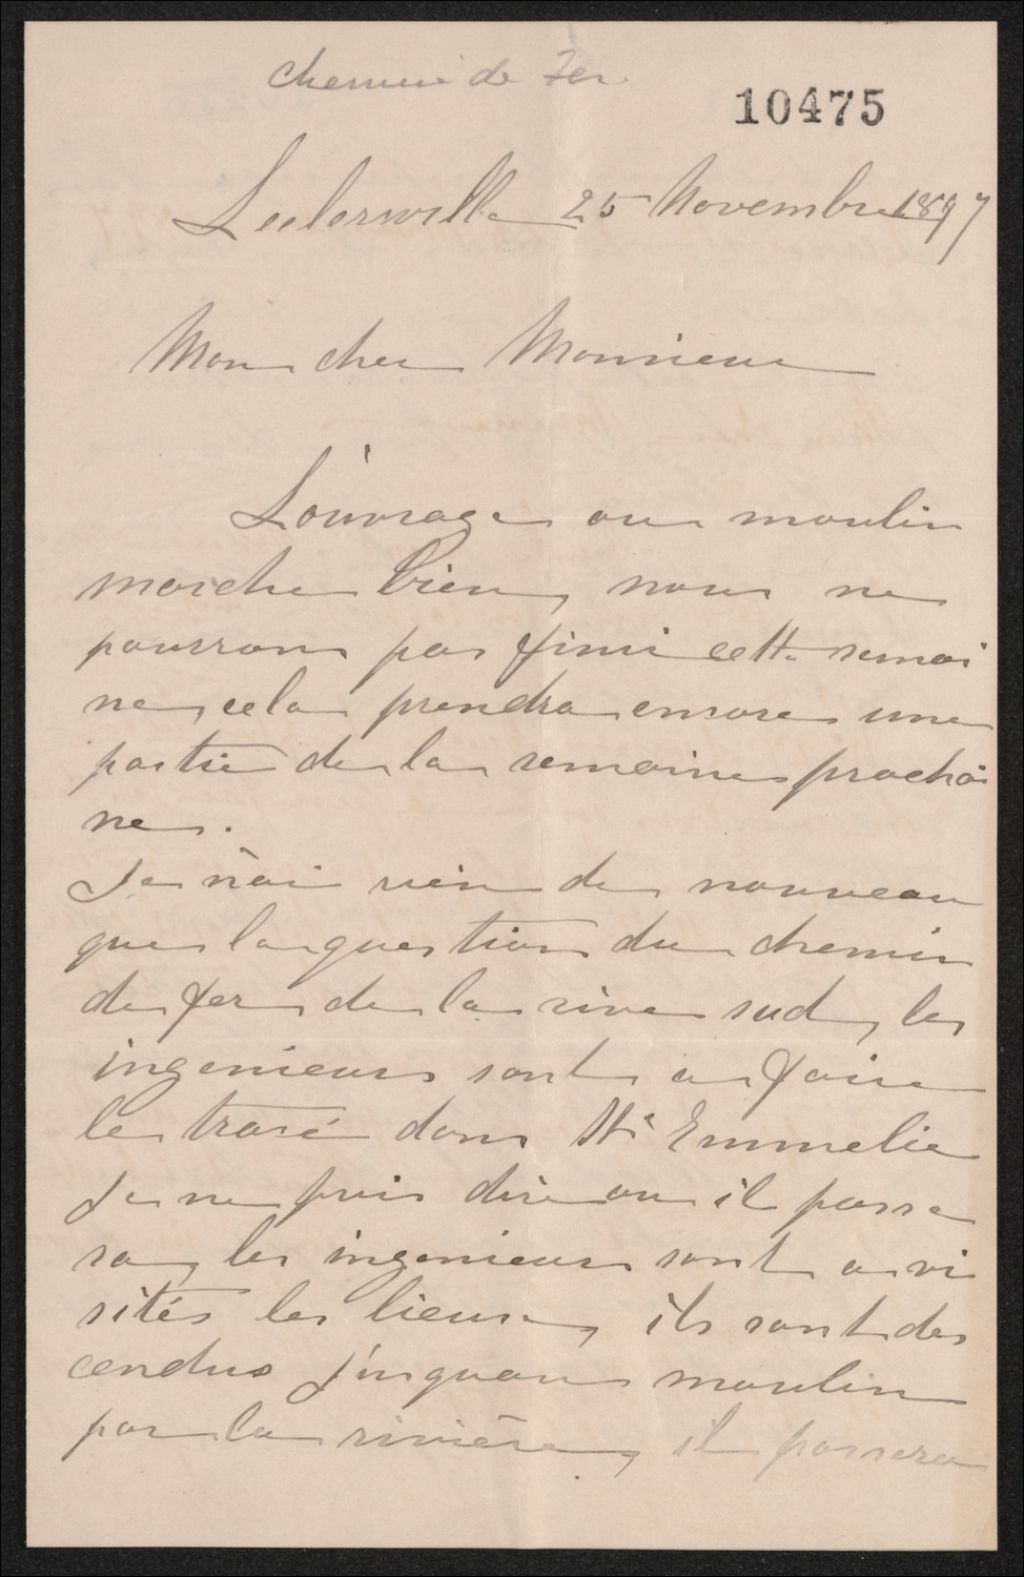 Chemin de Fer
10475
Leclercville 25 Novembre 1897
Mon cher Monsieur
L'ouvrage au moulin
marche bien, nous ne
pourrons pas finir cette semai
ne, cela prendra encore une
partie de la semaine prochai
ne.
Je n'ai rien de nouveau
que la question du chemin
de fer de la rive sud, les
ingenieurs sont a faire
le trasé dans Ste Emmelie
Je ne puis dire ou il passe
ra, les ingenieurs sont a vi
sités les lieux, ils sont des
cendus jusquau moulin
par la rivière, il passera